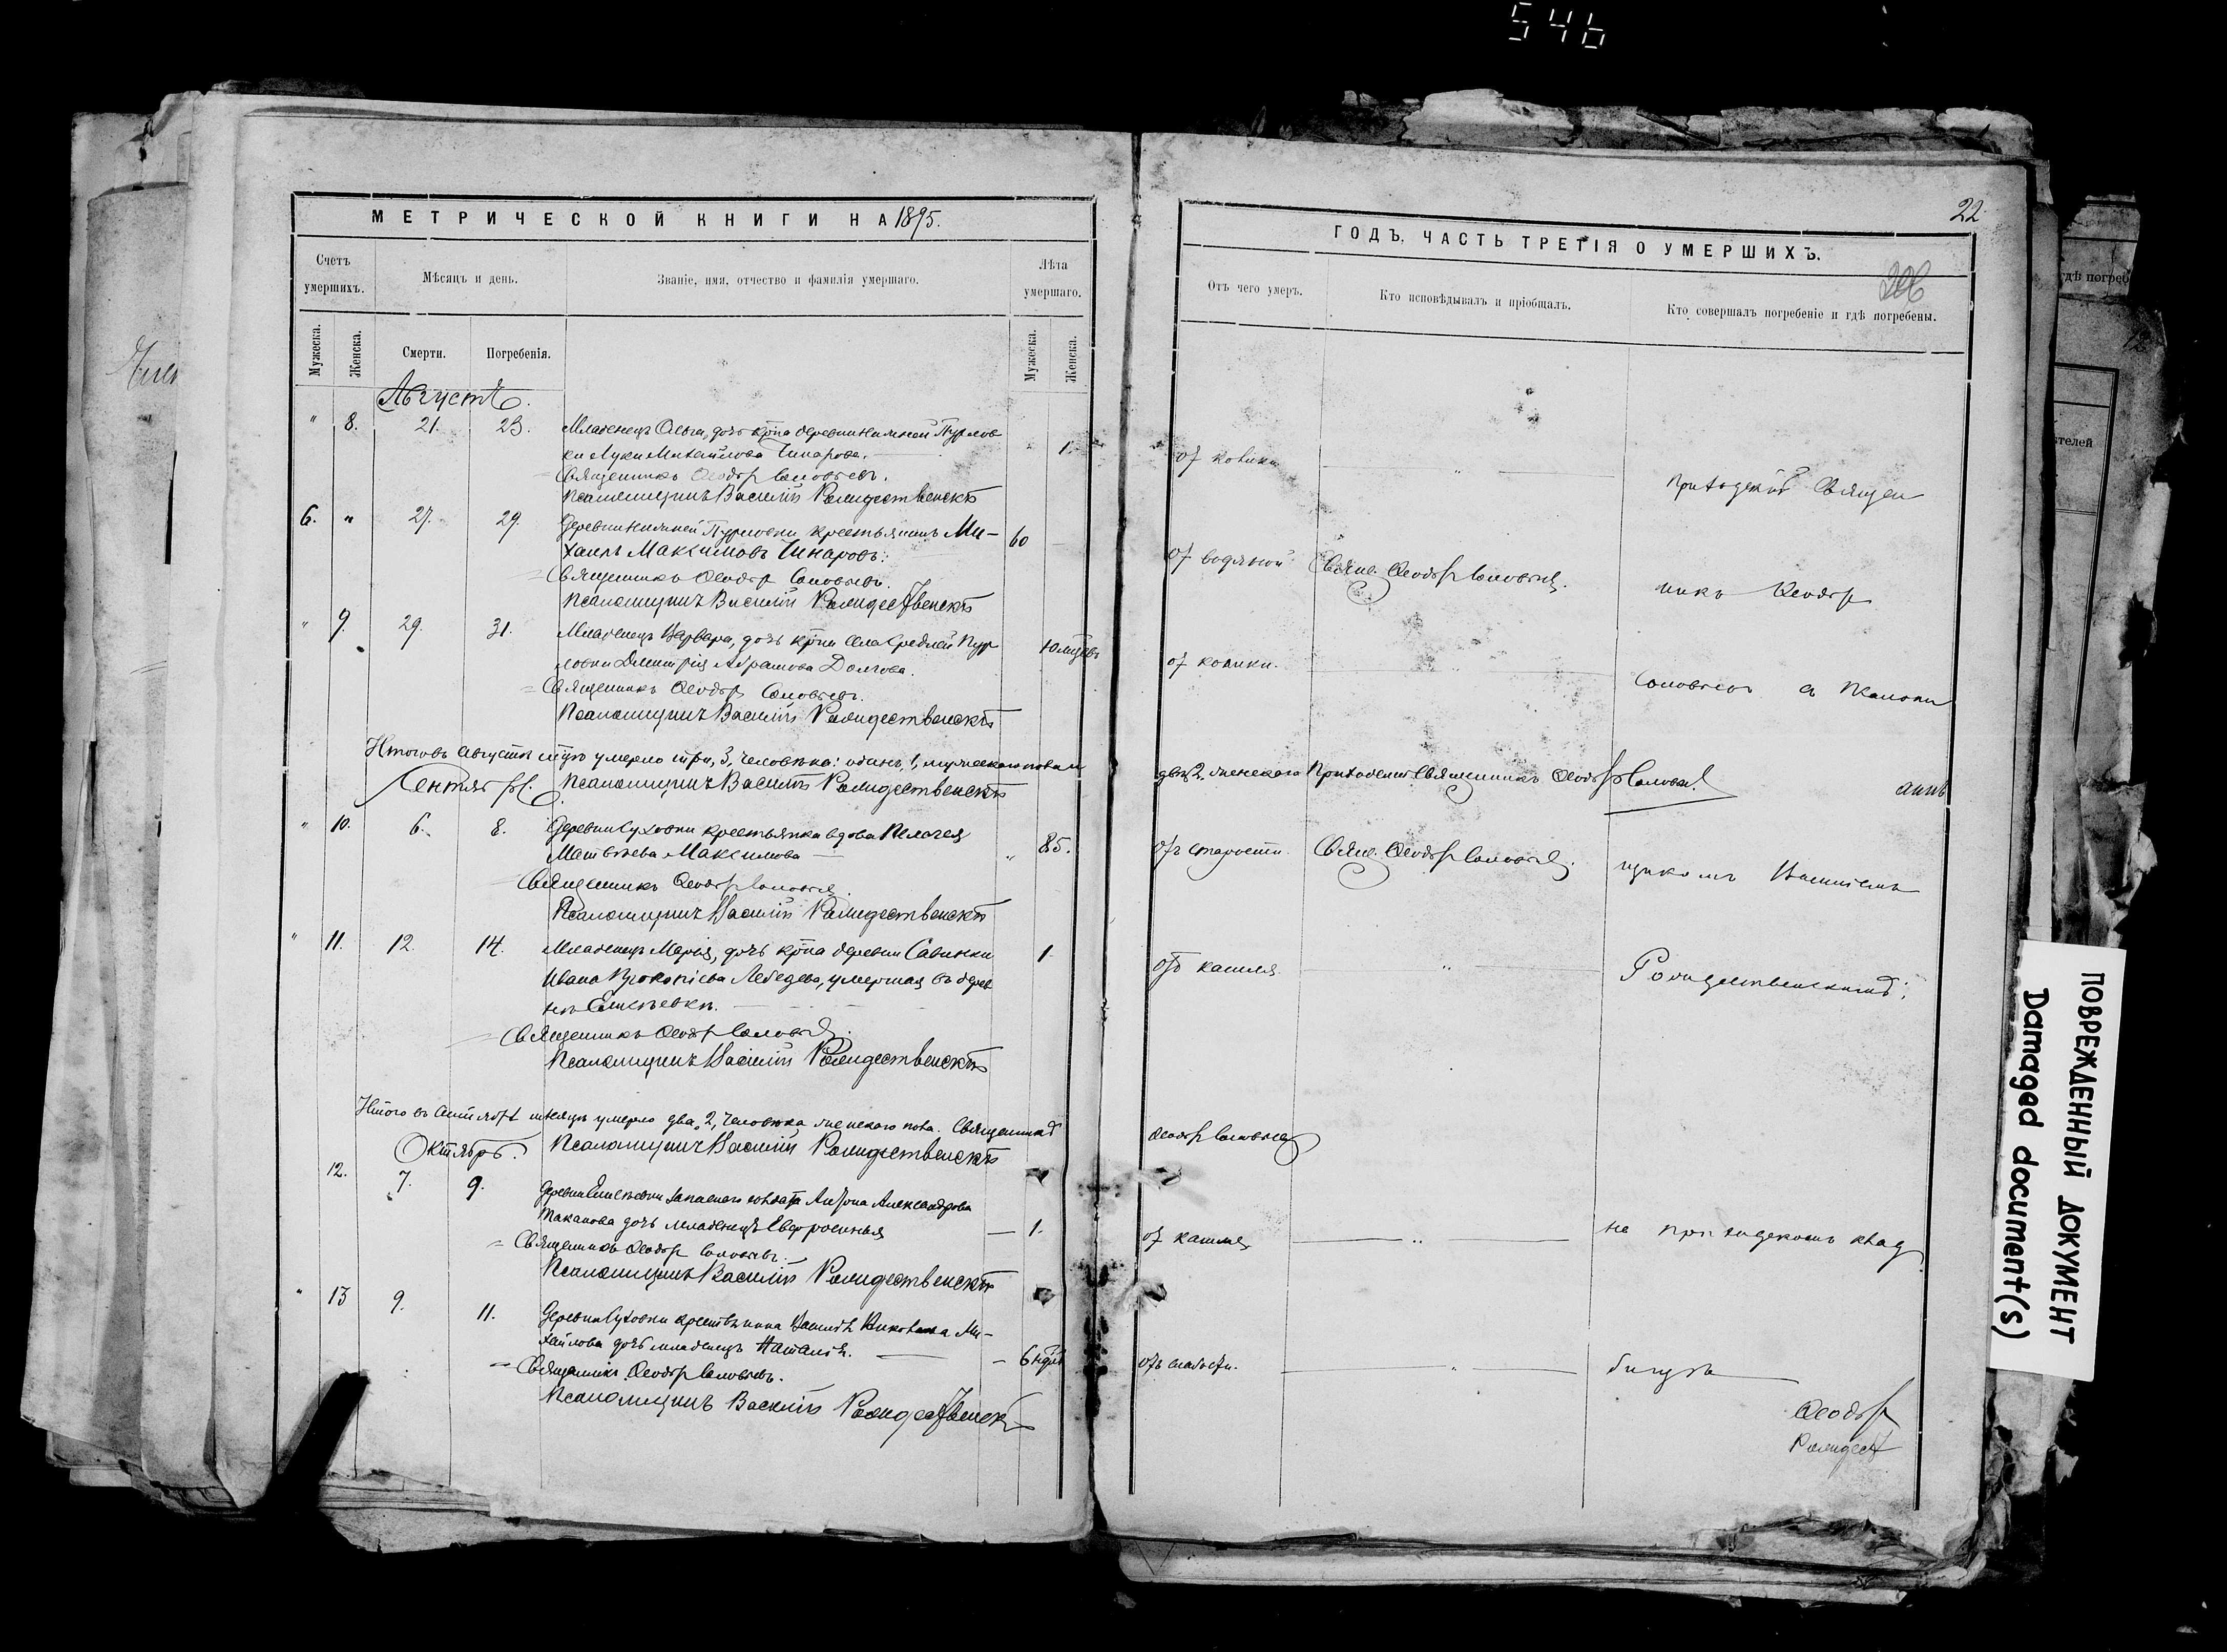 546
МЕТРИЧЕСКОЙ КНИГИ НА 1895.
Счетъ умершихъ.
Мѣсяцъ и день.
Званіе, имя, отчество и фамилія умершаго.
Лѣта умершаго.
Мужеска.
Женска.
Смерти.
Погребенія.
Мужеска.
Женска.
Августъ.
" 8. 21. 23. Младенецъ Ольга, дочь крна деревни Нижней Пурлов 1.
ки Луки Михайлова Чинарова.
Священникъ Ѳеодоръ Соловьевъ.
Псаломщикъ Василій Рождественскій
6. " 27. 29. Деревни Нижней Пурловки крестьянинъ Ми- 60
хаилъ Максимовъ Чинаровъ.
Священникъ Ѳеодоръ Соловьевъ.
Псаломщикъ Василій Рождественскій
" 9. 29. 31. Младенецъ Варвара, дочь крна села Средней Пур
ловки Димитрія Абрамова Долгова.
Священникъ Ѳеодоръ Соловьевъ.
Псаломщикъ Василій Рождественскій
Итого въ августѣ мцѣ умерло три, 3, человѣка: одинъ, 1, мужескаго пола и
Сентябрь. Псаломщикъ Василій Рождественскій
" 10. 6. 8. Деревни Суховки крестьянка вдова Пелагея
Матвѣева Максимова " 85.
Священникъ Ѳеодоръ Соловьевъ.
Псаломщикъ Василій Рождественскій
" 11. 12. 14. Младенецъ Марія, дочь крна деревни Савинки 1.
Ивана Прокопіева Лебедева, умершая въ дерев
нѣ Елисѣевкѣ.
Священникъ Ѳеодоръ Соловьевъ.
Псаломщикъ Василій Рождественскій
Итого въ сентябрѣ мѣсяцѣ умерло два, 2, человѣка женскаго пола. Священникъ
Октябрь. Псаломщикъ Василій Рождественскій
12. 7. 9. Деревни Елисѣевки запаснаго солдата Антона Александрова
дочь младенецъ Евфросинья 1.
Священникъ Ѳеодоръ Соловьевъ.
Псаломщикъ Василій Рождественскій
" 13 9. 11. Деревни Суховки крестьянина Ми-
хайлова дочь младенецъ Наталія. 6 ндль
Священникъ Ѳеодоръ Соловьевъ.
Псаломщикъ Василій Рождественскій
22
ГОДЪ, ЧАСТЬ ТРЕТІЯ О УМЕРШИХЪ.
206
Отъ чего умеръ.
Кто исповѣдывалъ и пріобщалъ.
Кто совершалъ погребеніе и гдѣ погребены.
от колики " приходскій Священ
от водяной Свящ. Ѳеодоръ Соловьевъ. никъ Ѳеодоръ
от колики. " Соловьевъ съ псалом
двѣ, 2, женскаго Приходскій Священникъ Ѳеодоръ Соловьевъ
отъ старости. Свящ. Ѳеодоръ Соловьевъ. щикомъ Василіемъ
отъ кашля " Рождественскимъ;
Ѳеодоръ Соловьевъ
от кашля " на приходскомъ клад
отъ слабости. " бищѣ
Ѳеодоръ
Рождест
ПОВРЕЖДЕННЫЙ ДОКУМЕНТ
Damaged document(s)
гдѣ погреб
ителей